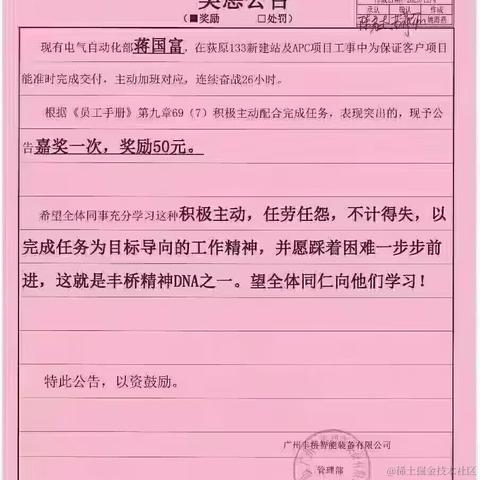 奖惩公告
（■奖励 □处罚）
承认 确认 作成
现有电气自动化部蒋国富，在荻原133新建站及APC项目工事中为保证客户项目
能准时完成交付，主动加班对应，连续奋战26小时。
根据《员工手册》第九章69（7）积极主动配合完成任务，表现突出的，现予公
告嘉奖一次，奖励50元。
希望全体同事充分学习这种积极主动，任劳任怨，不计得失，以
完成任务为目标导向的工作精神，并愿踩着困难一步步前
进，这就是丰桥精神DNA之一。望全体同仁向他们学习！
特此公告，以资鼓励。
广州丰桥智能装备有限公司
管理部
@稀土掘金技术社区